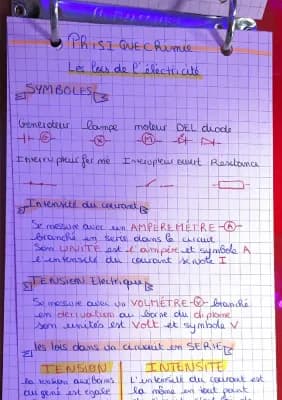 PHISIQUE CHIMIE
Les lois de l'électricité
SYMBOLES
Generateur lampe moteur DEL diode
G M
Interrupteur fermé Interrupteur ouvert Resistance
Intensité du courant
Se mesure avec un AMPÈREMÈTRE -A-
branché en serie dans le circuit
Son UNITÉ est l'ampère et symbole A
l'intensité du courant se note I
TENSION Electrique
Se mesure avec un VOLMÈTRE -V- branché
en derivation au borne du diplome
son unités est Volt et symbole V
les lois dans un circuit en SERIE
TENSION INTENSITÉ
la tension aux bornes L'intensité du courant est
du géné est égale la même en tout point